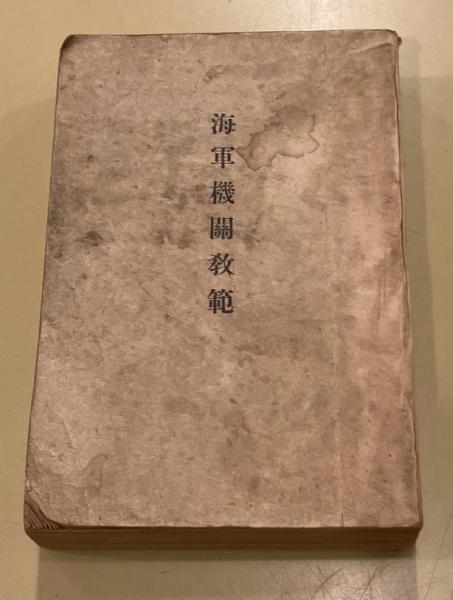 海軍機關教範